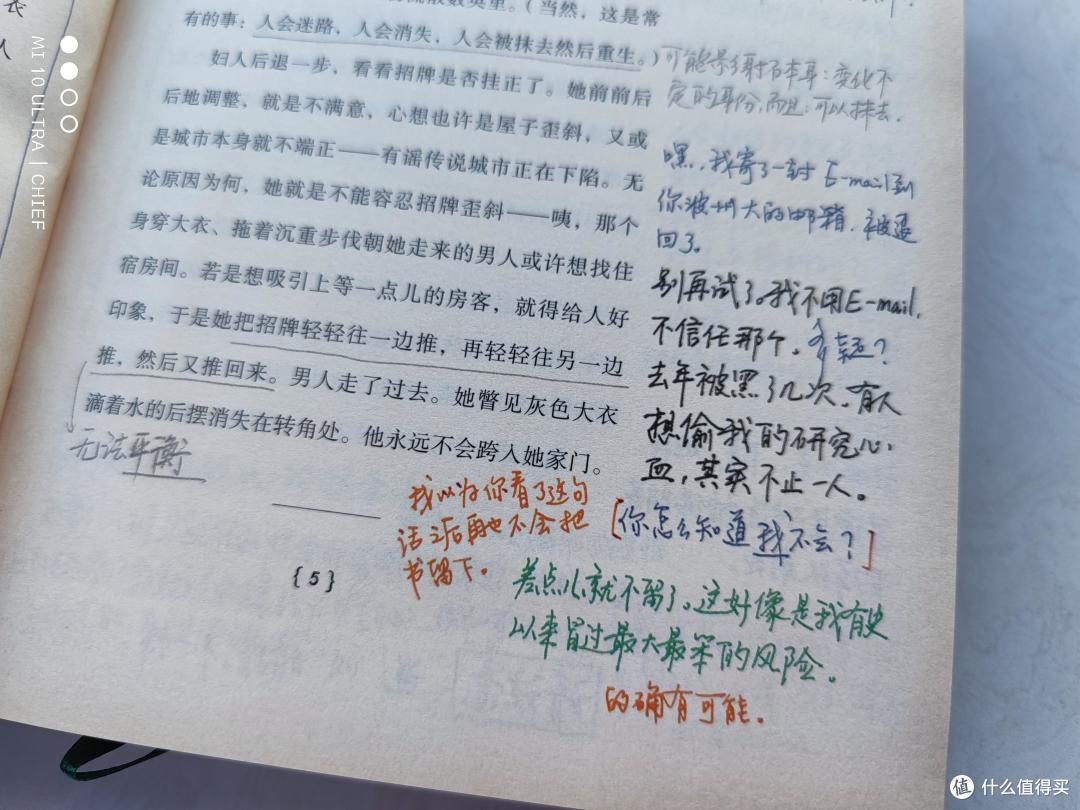 衣
人
MI 10 ULTRA | CHIEF
流散数英里。（当然，这是常
有的事：人会迷路，人会消失，人会被抹去然后重生。）
妇人后退一步，看看招牌是否挂正了。她前前后
后地调整，就是不满意，心想也许是屋子歪斜，又或
是城市本身就不端正——有谣传说城市正在下陷。无
论原因为何，她就是不能容忍招牌歪斜——咦，那个
身穿大衣、拖着沉重步伐朝她走来的男人或许想找住
宿房间。若是想吸引上等一点儿的房客，就得给人好
印象，于是她把招牌轻轻往一边推，再轻轻往另一边
推，然后又推回来。男人走了过去。她瞥见灰色大衣
滴着水的后摆消失在转角处。他永远不会跨入她家门。
无法平衡
{5}
可能影射石本耳：变化不
定的身份，而且：可以抹去．
嘿，我寄了一封E-mail到
你波州大的邮箱．被退
回了。
别再试了。我不用E-mail，
不信任那个。
去年被黑了几次，有人
想偷我的研究心
血，其实不止一人。
我以为你看了这句
话之后再也不会把
书留下。
[你怎么知道我不会？]
差点儿就不留了。这好像是我有史
以来冒过最大最笨的风险。
的确有可能．
值 什么值得买